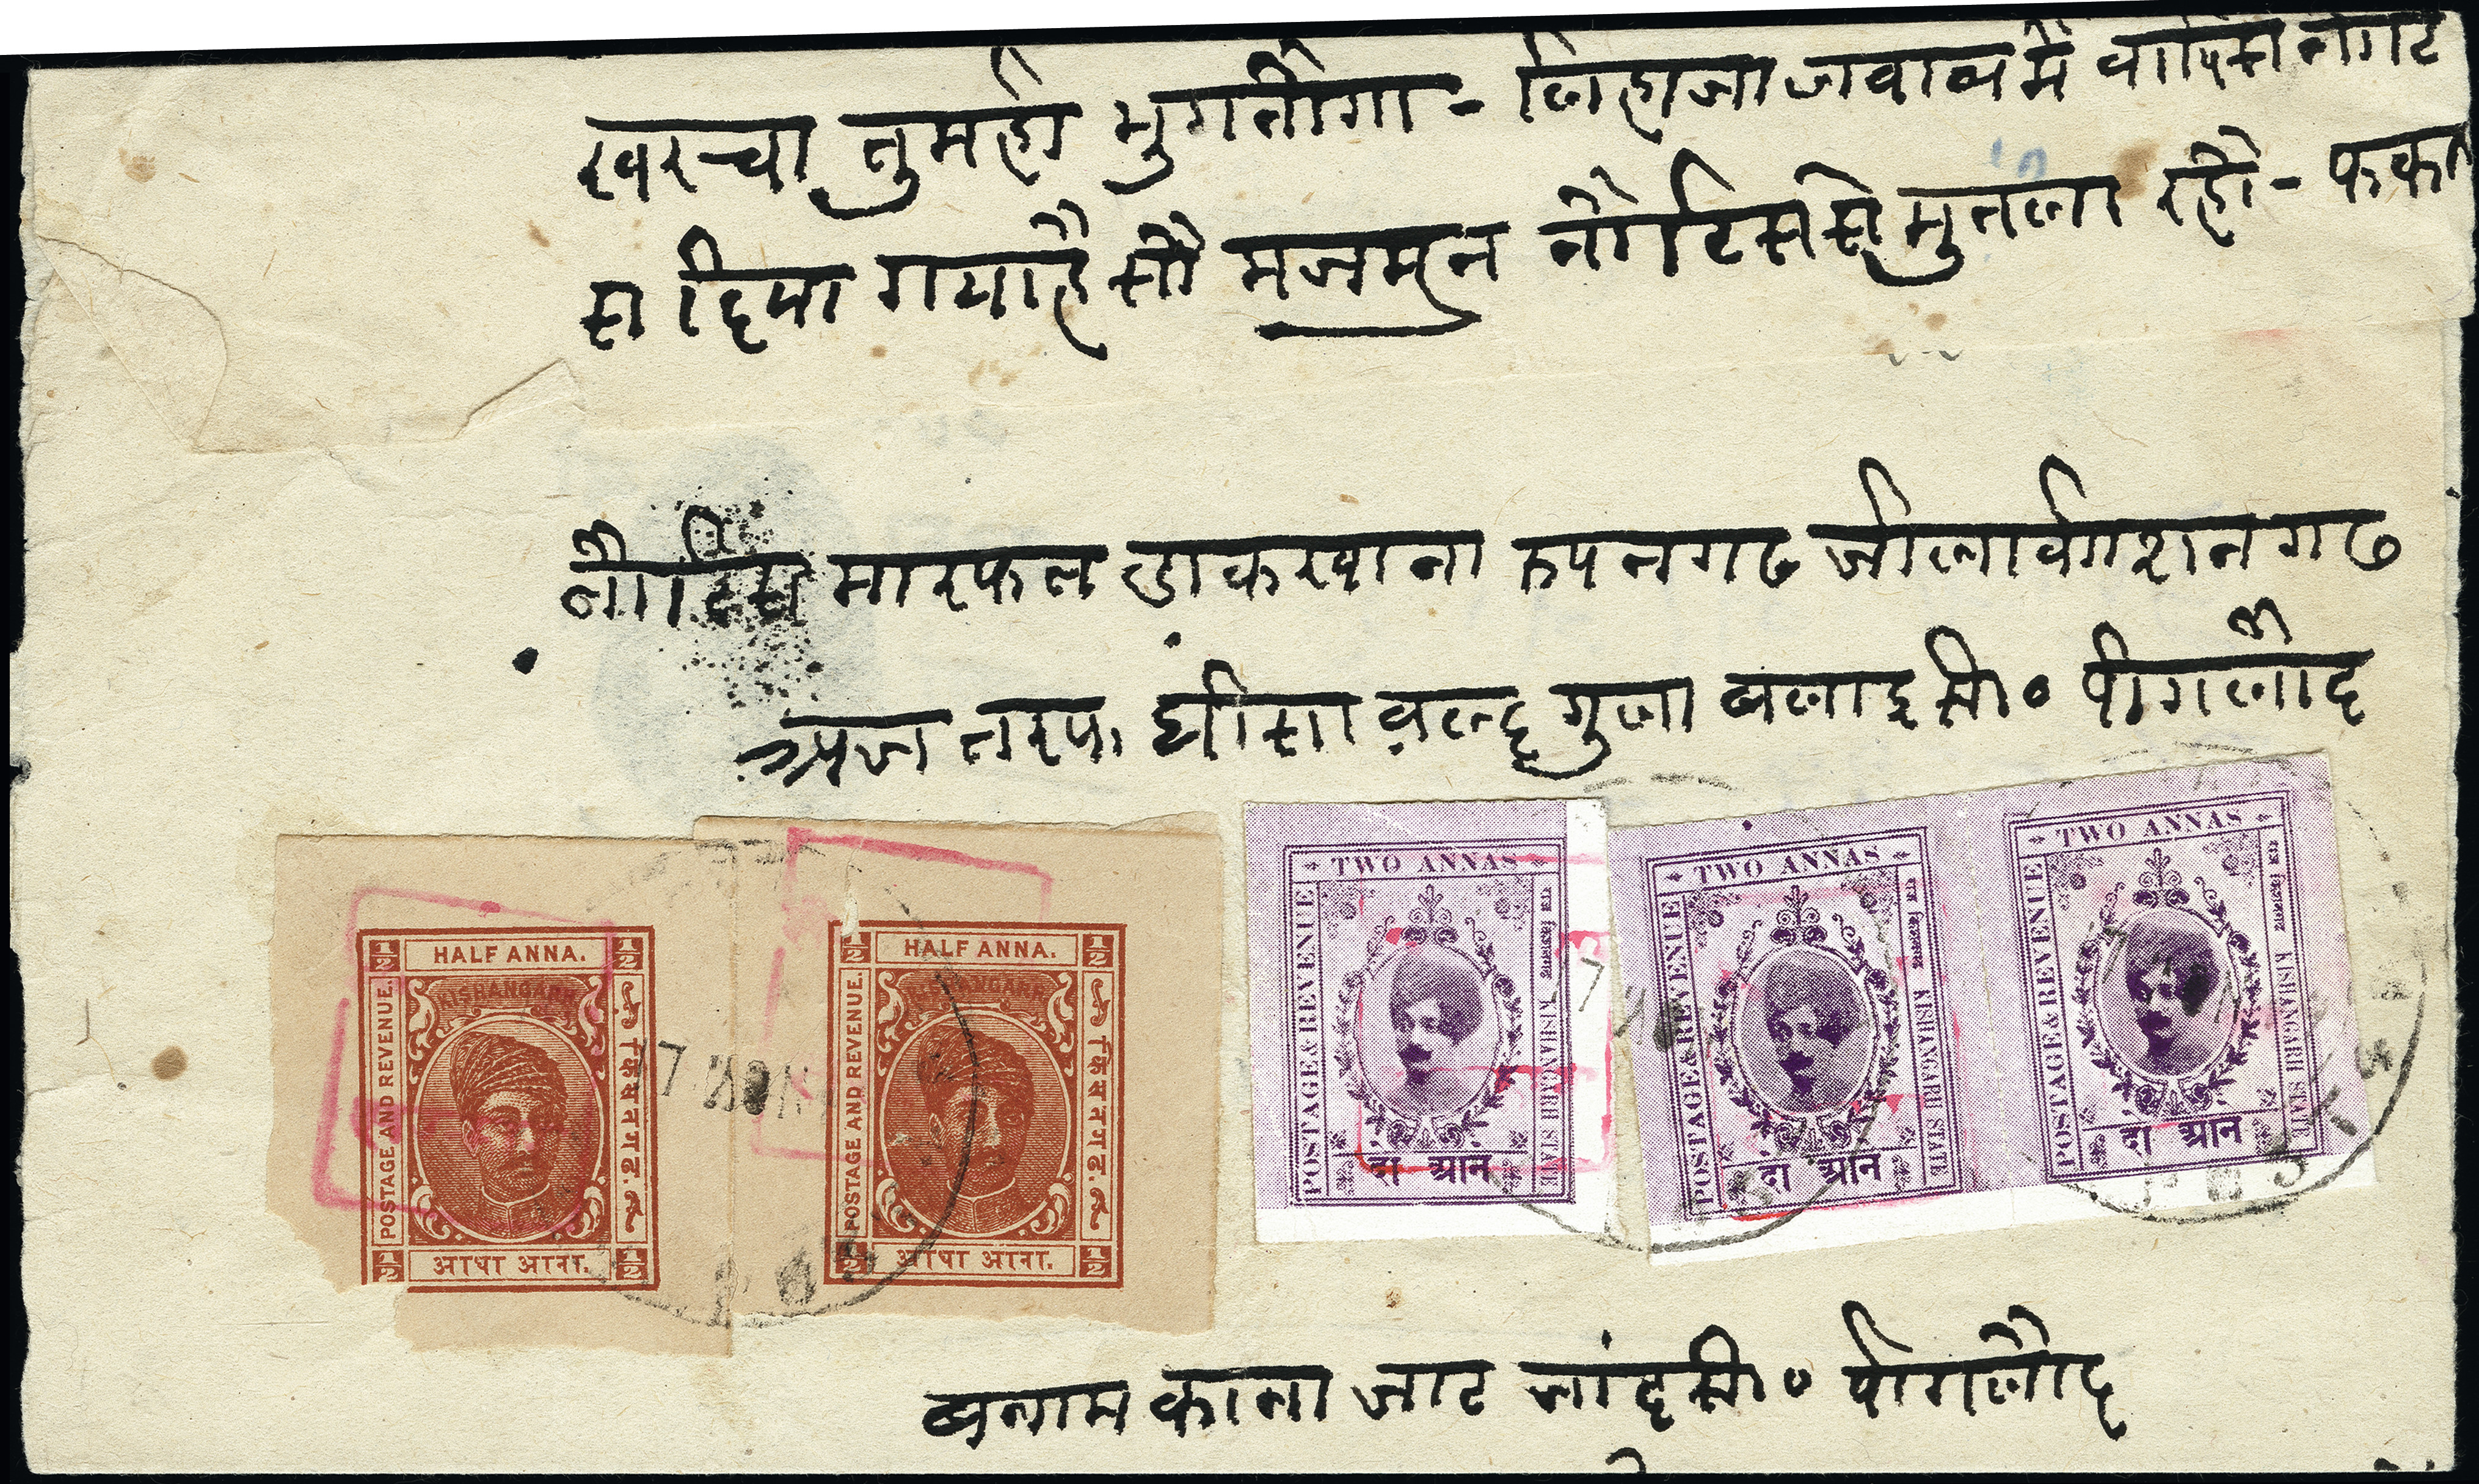 खरचा तुमही भुगतोगा - लिहाजा जवाब में वापिस नोट
स दिया गया है सो मजमून नोटिस से मुतला रहो - फकत
नोटिस मारफत डाकखाना रुपनगढ जीला किशनगढ
अज तरफ घीसा वल्द गुला बलाइ सा० पींगलोद
HALF ANNA.
KISHANGARH
POSTAGE AND REVENUE.
किषनगढ.
आधा आना.
HALF ANNA.
KISHANGARH
POSTAGE AND REVENUE.
किषनगढ.
आधा आना.
TWO ANNAS
POSTAGE & REVENUE
राज किशनगढ
KISHANGARH STATE
दो आने
TWO ANNAS
POSTAGE & REVENUE
राज किशनगढ
KISHANGARH STATE
दो आने
TWO ANNAS
POSTAGE & REVENUE
राज किशनगढ
KISHANGARH STATE
दो आने
बनाम काना जाट सा० पींगलोद